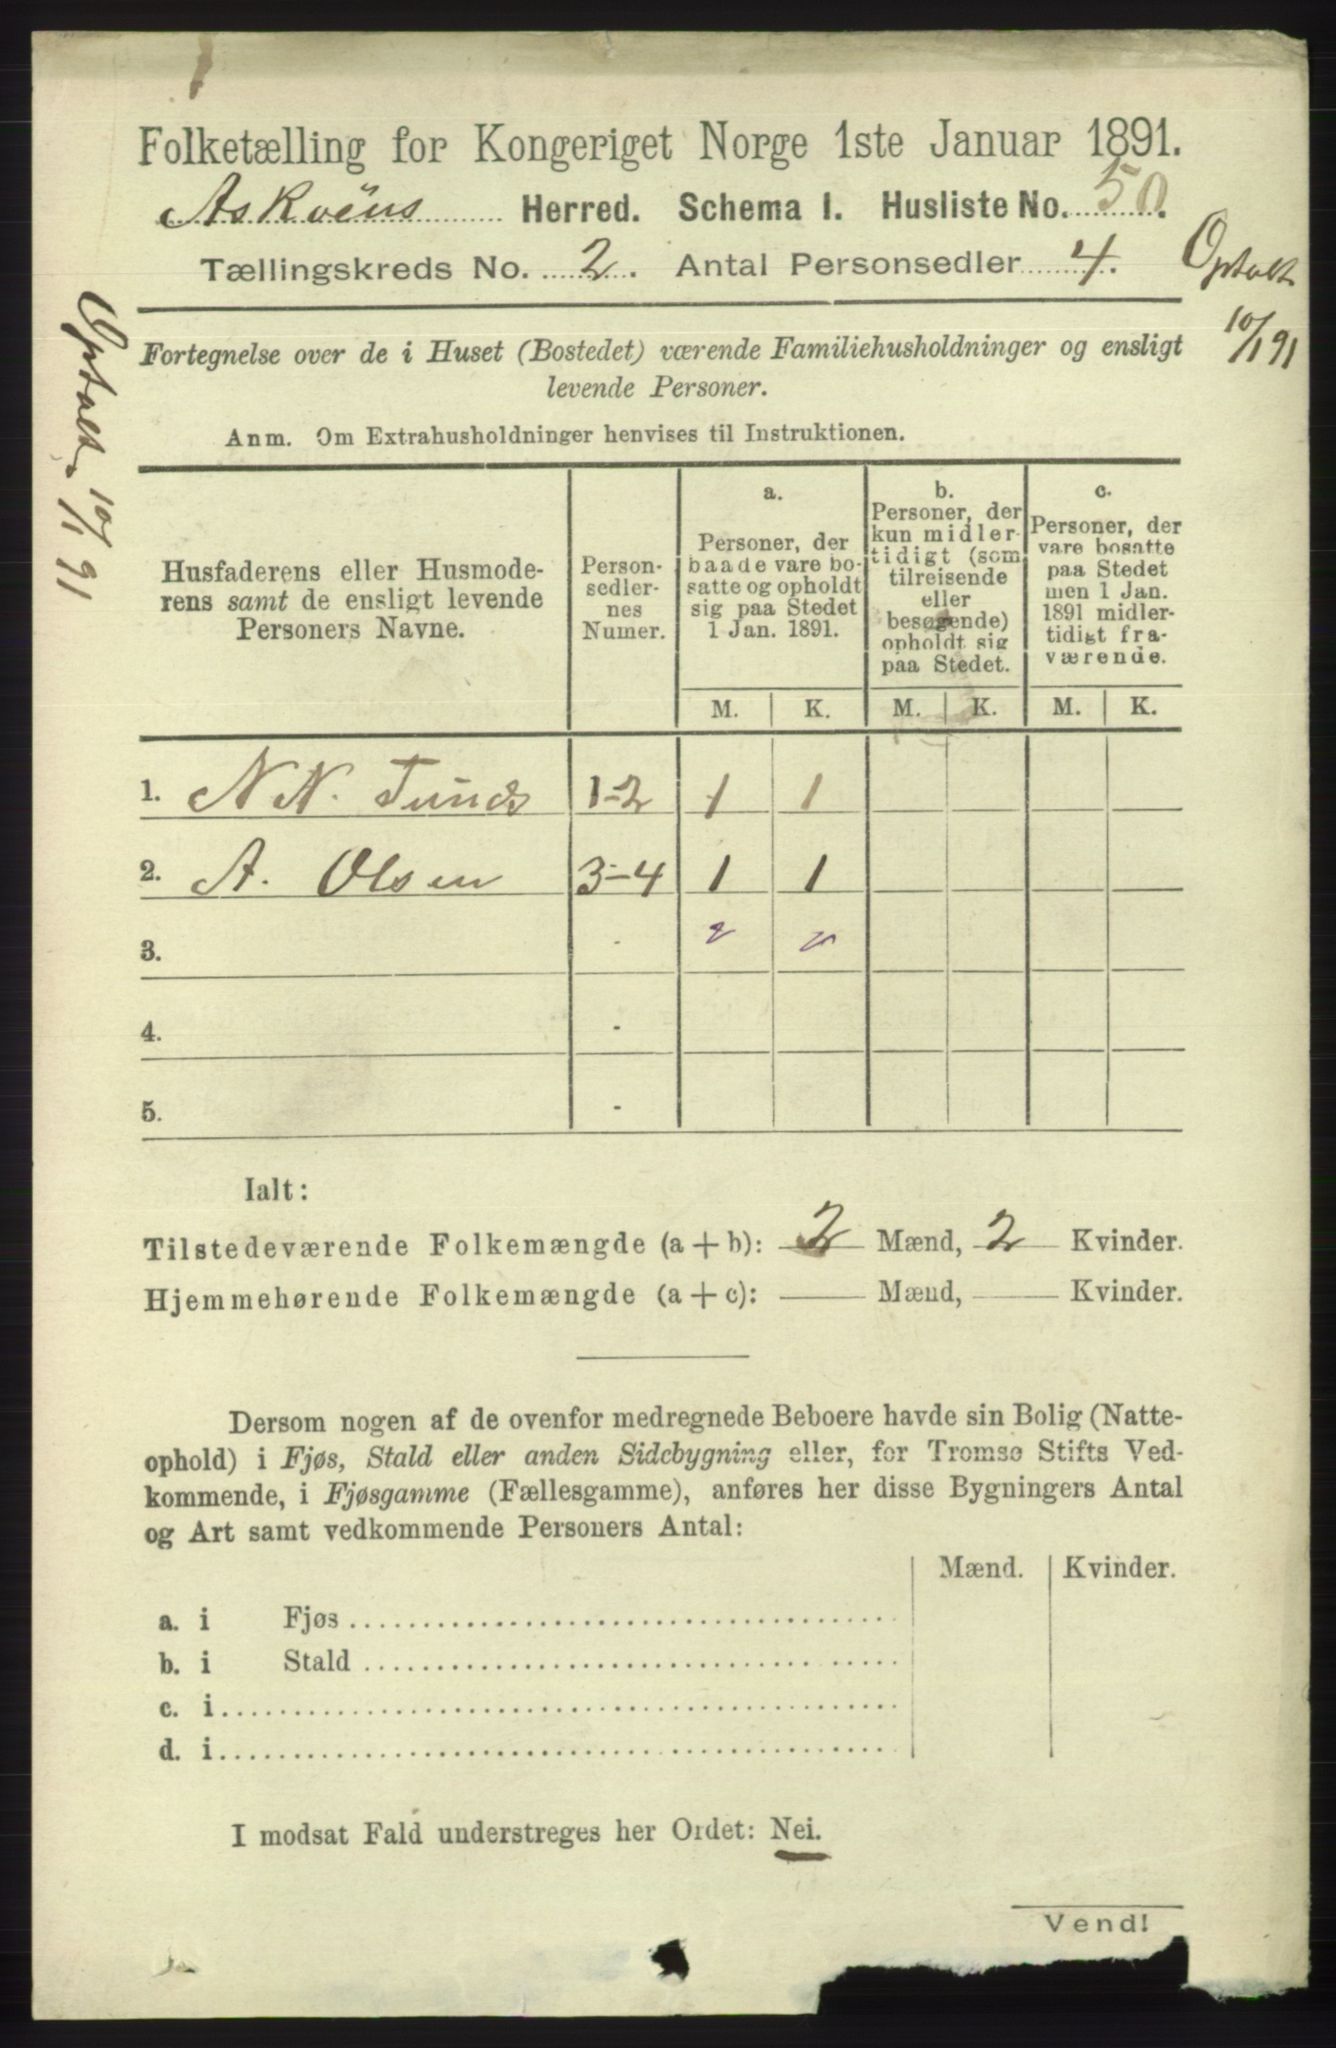 Folketælling for Kongeriget Norge 1ste Januar 1891.
Askøens Herred. Schema I. Husliste No. 50.
Tællingskreds No. 2. Antal Personsedler 4.
Optalt
10/1 91
Optalt 10/1 91
Fortegnelse over de i Huset (Bostedet) værende Familiehusholdninger og ensligt
levende Personer.
Anm. Om Extrahusholdninger henvises til Instruktionen.
Husfaderens eller Husmode-
rens samt de ensligt levende
Personers Navne.
Person-
sedler-
nes
Numer.
a.
Personer, der
baade vare bo-
satte og opholdt
sig paa Stedet
1 Jan. 1891.
b.
Personer, der
kun midler-
tidigt (som
tilreisende
eller
besøgende)
opholdt sig
paa Stedet.
c.
Personer, der
vare bosatte
paa Stedet
men 1 Jan.
1891 midler-
tidigt fra-
værende.
M. K. M. K. M. K.
1. N. N. 1-2 1 1
2. A. Olsen 3-4 1 1
3. - 2 2
4. -
5. -
Ialt:
Tilstedeværende Folkemængde (a + b): 2 Mænd, 2 Kvinder.
Hjemmehørende Folkemængde (a + c): Mænd, Kvinder.
Dersom nogen af de ovenfor medregnede Beboere havde sin Bolig (Natte-
ophold) i Fjøs, Stald eller anden Sidebygning eller, for Tromsø Stifts Ved-
kommende, i Fjøsgamme (Fællesgamme), anføres her disse Bygningers Antal
og Art samt vedkommende Personers Antal:
Mænd. Kvinder.
a. i Fjøs
b. i Stald
c. i
d. i
I modsat Fald understreges her Ordet: Nei.
Vend!